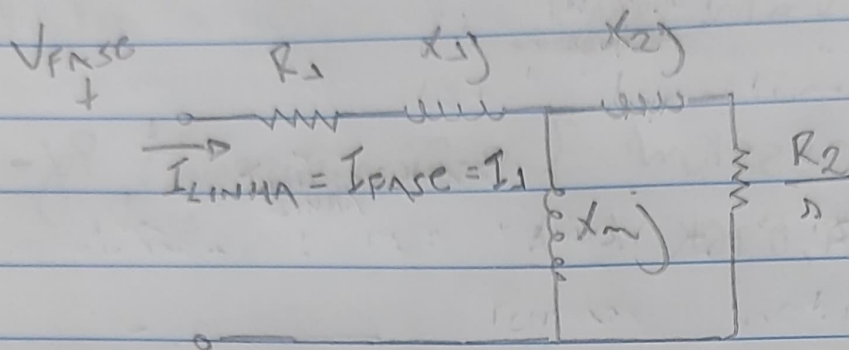 VFASE
+
R1
X1j
X2j
ILINHA = IFASE = I1
Xmj
R2
s